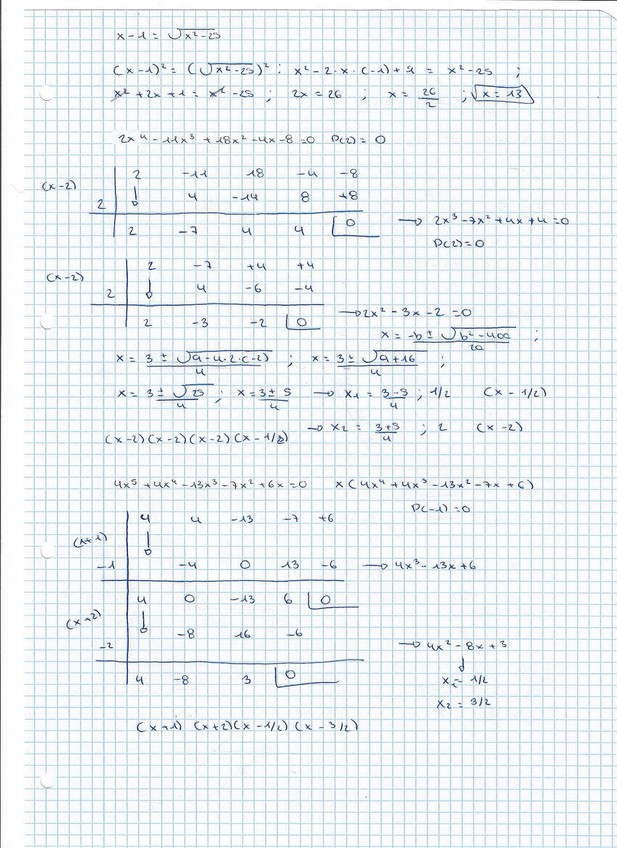 x-1 = √x²-25
(x-1)² = (√x²-25)² : x² - 2·x·(-1) + 1 = x² - 25 ;
x² + 2x + 1 = x² - 25 ; 2x = 26 ; x = 26/2 ; √x = 13
2x⁴ - 11x³ + 18x² - 4x - 8 = 0 P(2) = 0
2 -11 18 -4 -8
(x-2)
2 4 -14 8 +8
2 -7 4 4 0 → 2x³ - 7x² + 4x + 4 = 0
P(2) = 0
2 -7 +4 +4
(x-2)
2 4 -6 -4
2 -3 -2 0 → 2x² - 3x - 2 = 0
x = -b ± √b² - 4ac / 2a ;
x = 3 ± √9-4·2·(-2) / 4 ; x = 3 ± √9+16 / 4 ;
x = 3 ± √25 / 4 ; x = 3 ± 5 / 4 → x₁ = 3-5 / 4 ; 1/2 (x - 1/2)
(x-2)(x-2)(x-2)(x-1/2) → x₂ = 3+5 / 4 ; 2 (x-2)
4x⁵ + 4x⁴ - 13x³ - 7x² + 6x = 0 x(4x⁴ + 4x³ - 13x² - 7x + 6)
P(-1) = 0
4 4 -13 -7 +6
(x+1)
-1 -4 0 13 -6 → 4x³ - 13x + 6
4 0 -13 6 0
(x+2)
-2 -8 16 -6 → 4x² - 8x + 3
4 -8 3 0 x₁ = 1/2
x₂ = 3/2
(x+1) (x+2)(x-1/2) (x-3/2)